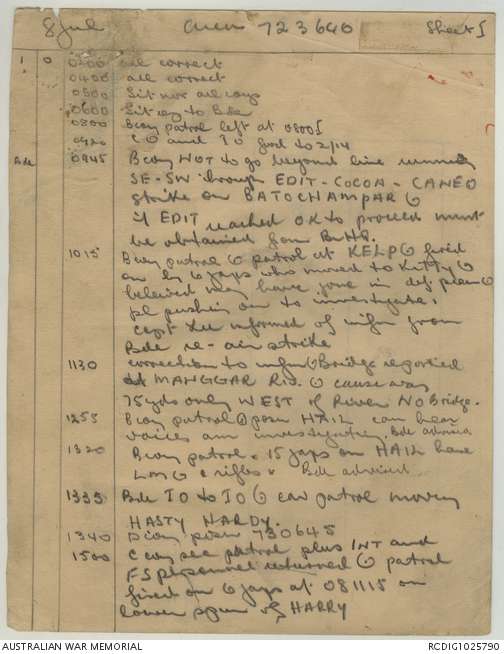 8 Jul area 723640 Sheet 1
1 0 0200 all correct
0400 all correct
0500 Sit nor all coys
0600 Sit rep to Bde
0800 B coy patrol left at 0800
0920 CO and IO fwd to 2/14
Bde 0945 B coy NOT to go beyond line running
SE-SW through EDIT-COCOA-CANEO
strike on BATOCHAMPAR
if EDIT reached OK to proceed must
be obtained from BnHQ.
1015 B coy patrol patrol at KELP fired
on by 6 Japs who moved to KITTY
believed may have gone in def
pl pushing on to investigate.
Capt informed of infm from
Bde re-air strike
1130 correction to infm Bridge reported
at MANGGAR Riv. cause was
75yds only WEST of River NO Bridge.
1255 B coy patrol posn HAIL can hear
voices am investigating. Bde advised
1320 B coy patrol. 15 Japs on HAIL have
LMG & rifles Bde advised
1335 Bde IO to IO car patrol moving
HASTY HARDY.
1340 D coy posn 730645
1500 C coy sec patrol plus INT and
FS personnel returned patrol
fired on 6 Japs at 081115 on
lower spur of HARRY
AUSTRALIAN WAR MEMORIAL RCDIG1025790